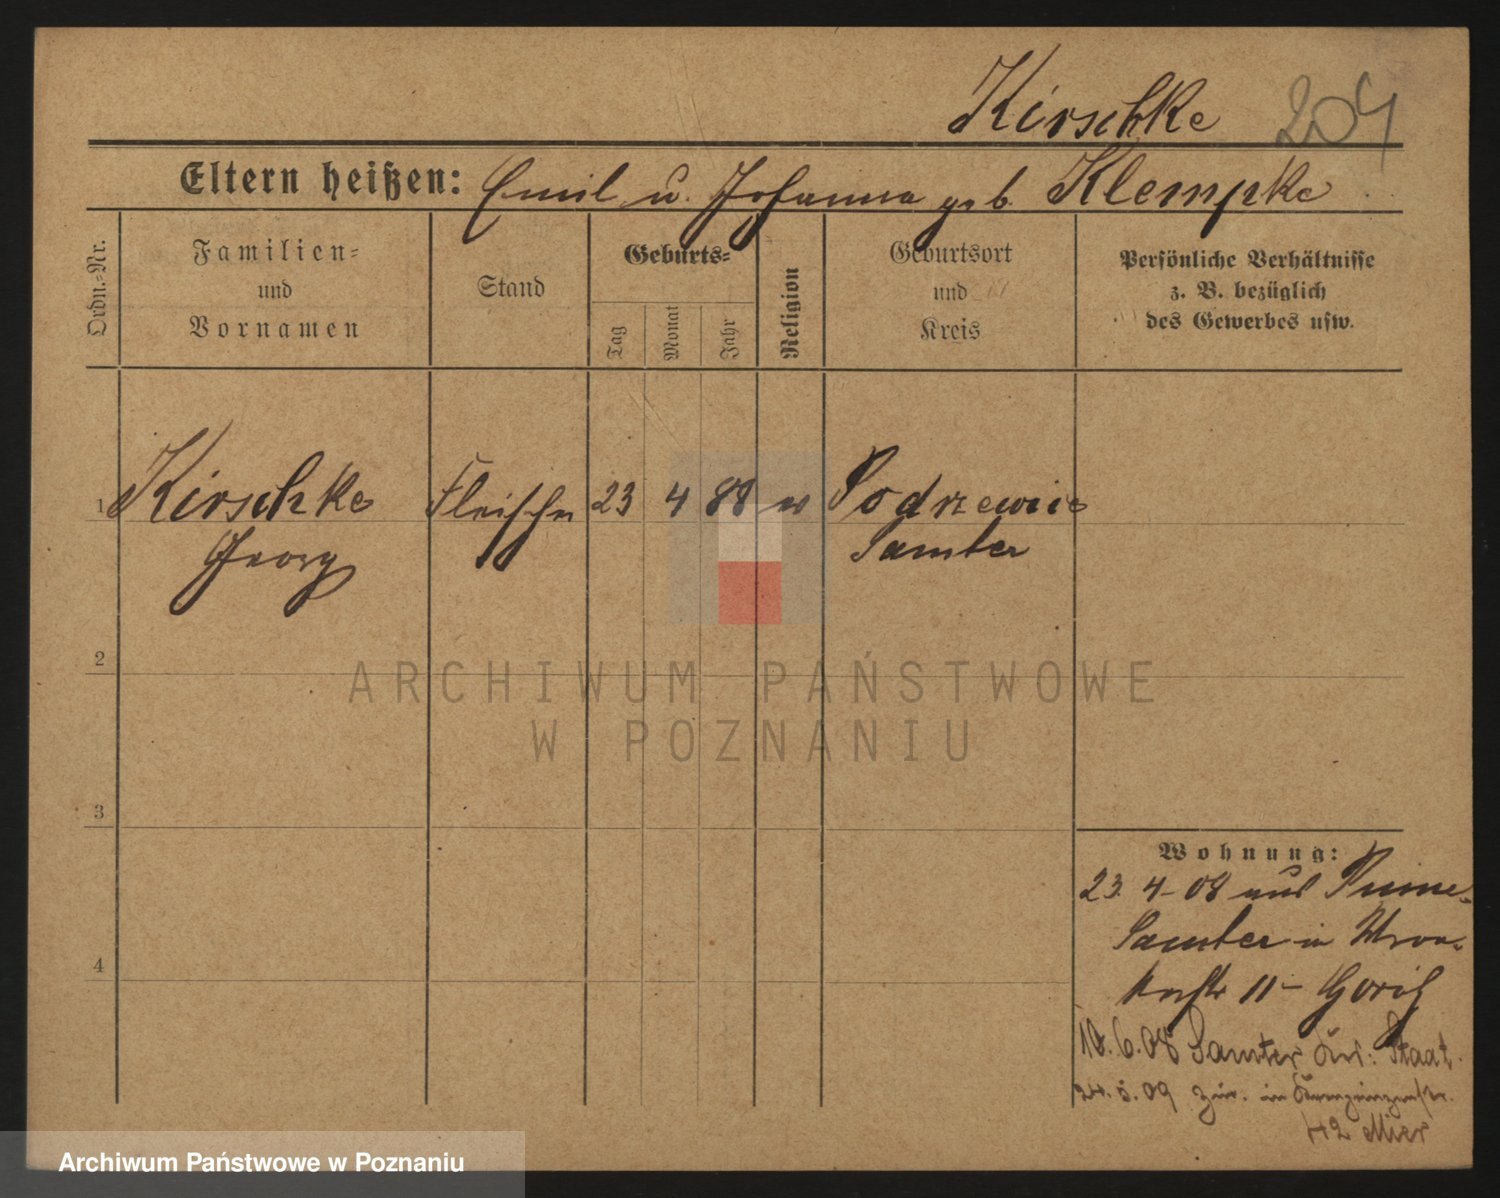 Kirschke 204
Eltern heißen: Emil u. Johanna geb. Klempke
Ordn.-Nr.
Familien-
und
Vornamen
Stand
Geburts-
Tag
Monat
Jahr
Religion
Geburtsort
und
Kreis
Persönliche Verhältnisse
z. B. bezüglich
des Gewerbes usw.
1 Kirschke Fleischer 23 4 88 Podrzewie
Georg Samter
2
ARCHIWUM PAŃSTWOWE
W POZNANIU
3
4
Wohnung:
23. 4-08 aus
Samter in
11-
10.6.08 Samter
24.5.09 zur. in
42
Archiwum Państwowe w Poznaniu